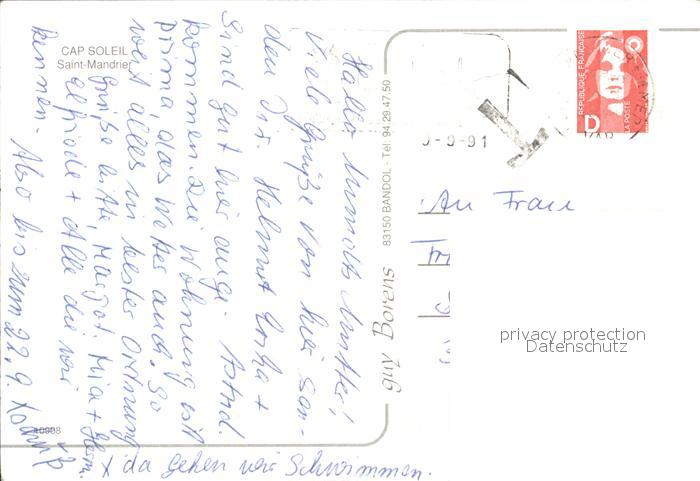 CAP SOLEIL
Saint-Mandrier
Hallo Mutter!
Viele Grüße von hier sen-
den Dir Helmut +
Astrid.
Sind gut hier ange-
kommen. Die Wohnung ist
prima, das Wetter auch. So
weit alles in bester Ordnung
Grüße bitte Margot, Mia + Herm.
Elfriede + Alle die wir
kennen. Also bis zum 22.9.
x da gehen wir Schwimmen.
10908
guy Borens
83150 BANDOL - Tél. 94 29 47 50
9-9-91
T
REPUBLIQUE FRANÇAISE
LA POSTE
D
VAR
An Frau
privacy protection
Datenschutz